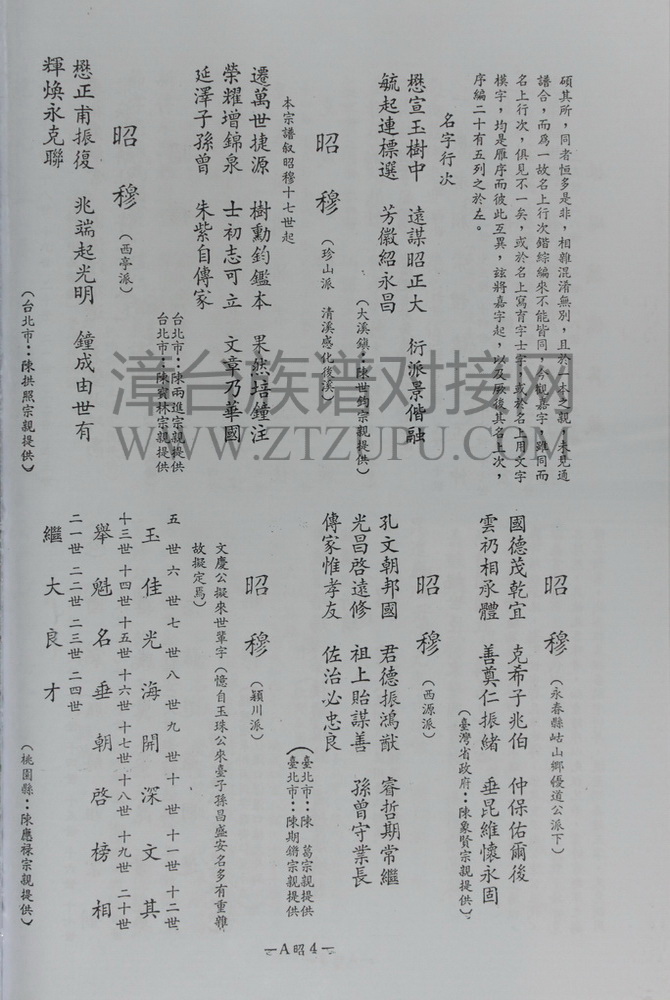 碩其所，同者恒多是非，相雜混淆無別，且於一本之親，未見適
譜合，而為一故名上行次錯綜編來不能皆同，今觀嘉字，雖同而
名上行次，俱見不一矣，或於名上寫育字士字或於名上用文字
模字，均是雁序而彼此互異，茲將嘉字起，以及厥後其名上次，
序編二十有五列之於左。
名字行次
懋宣玉樹中　遠謀昭正大　衍派景偕融
毓起連標選　芳徽紹永昌
（大溪鎮：陳世鈞宗親提供）
昭穆（珍山派　清溪感化後溪）
本宗譜叙昭穆十七世起
遷萬世捷源　樹勳鈞鑑本　果然培鐘注
榮耀增錦泉　士初志可立　文章乃華國
延澤子孫曾　朱紫自傳家
台北市：陳兩進宗親提供
台北市：陳寶林宗親提供
昭穆（西亭派）
懋正甫振復　兆端起光明　鐘成由世有
輝煥永克聯
（台北市：陳拱照宗親提供）
昭穆（永春縣岵山鄉優道公派下）
國德茂乾宜　克希子兆伯　仲保佑爾後
雲礽相承體　善奠仁振緒　垂昆維懷永固
（臺灣省政府：陳象賢宗親提供）
昭穆（西源派）
孔文朝邦國　君德振鴻猷　睿哲期常繼
光昌啓遠修　祖上貽謀善　孫曾守業長
傳家惟孝友　佐治必忠良
（臺北市：陳　葛宗親提供
臺北市：陳期鏘宗親提供）
昭穆（穎川派）
文慶公擬來世輩字（憶自玉珠公來臺子孫昌盛安名多有重雜
故擬定焉）
五世六世七世八世九世十世十一世十二世
玉佳光海開深文其
十三世十四世十五世十六世十七世十八世十九世二十世
舉魁名垂朝啓榜相
二一世二二世二三世二四世
繼大良才
（桃園縣：陳應祿宗親提供）
—A昭4—
漳台族谱对接网
WWW.ZTZUPU.COM